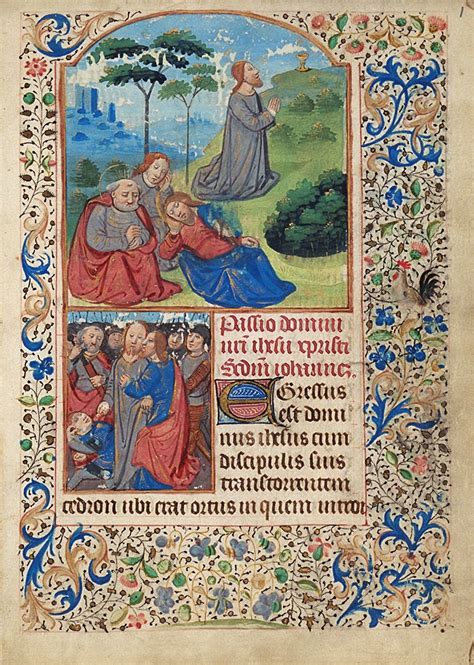 Passio domini
nr̄i ih̄esu xpristi
Scdm̄ iohannez.
Egressus
est domi
nus ih̄esus cum
discipulis suis
trans torrentem
cedron ubi erat ortus in quem introi